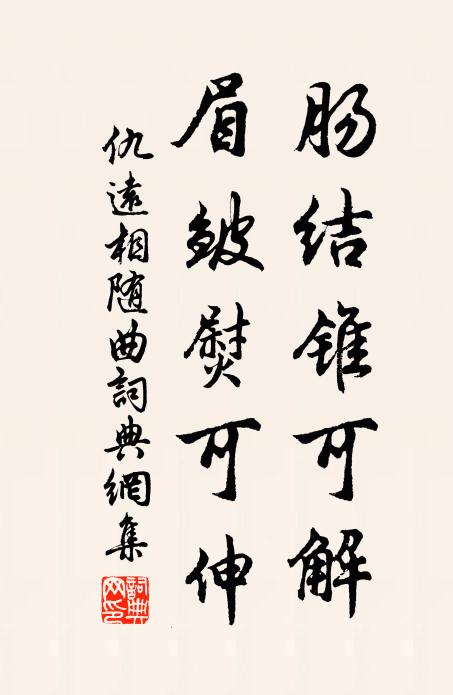 肠结锥可解
眉皱熨可伸
仇遠相随曲詞典網集
詞典
网印